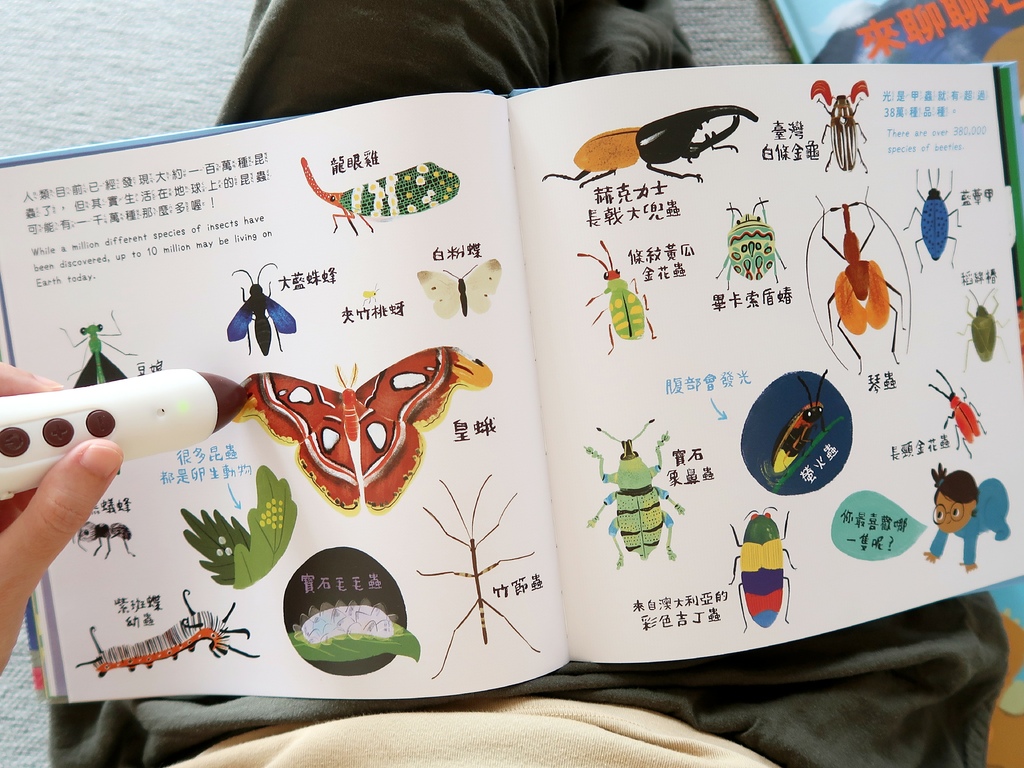 來聊聊
人類目前已經發現大約一百萬種昆
蟲了，但其實生活在地球上的昆蟲
可能有一千萬種那麼多喔！
While a million different species of insects have
been discovered, up to 10 million may be living on
Earth today.
龍眼雞
大藍蛛蜂
夾竹桃蚜
白粉蝶
豆娘
皇蛾
很多昆蟲
都是卵生動物
蟻蜂
紫斑蝶
幼蟲
寶石毛毛蟲
竹節蟲
赫克力士
長戟大兜蟲
臺灣
白條金龜
光是甲蟲就有超過
38萬種品種。
There are over 380,000
species of beetles.
條紋黃瓜
金花蟲
畢卡索盾蝽
藍蕈甲
稻綠蝽
琴蟲
腹部會發光
螢火蟲
寶石
象鼻蟲
長頸金花蟲
你最喜歡哪
一隻呢？
來自澳大利亞的
彩色吉丁蟲